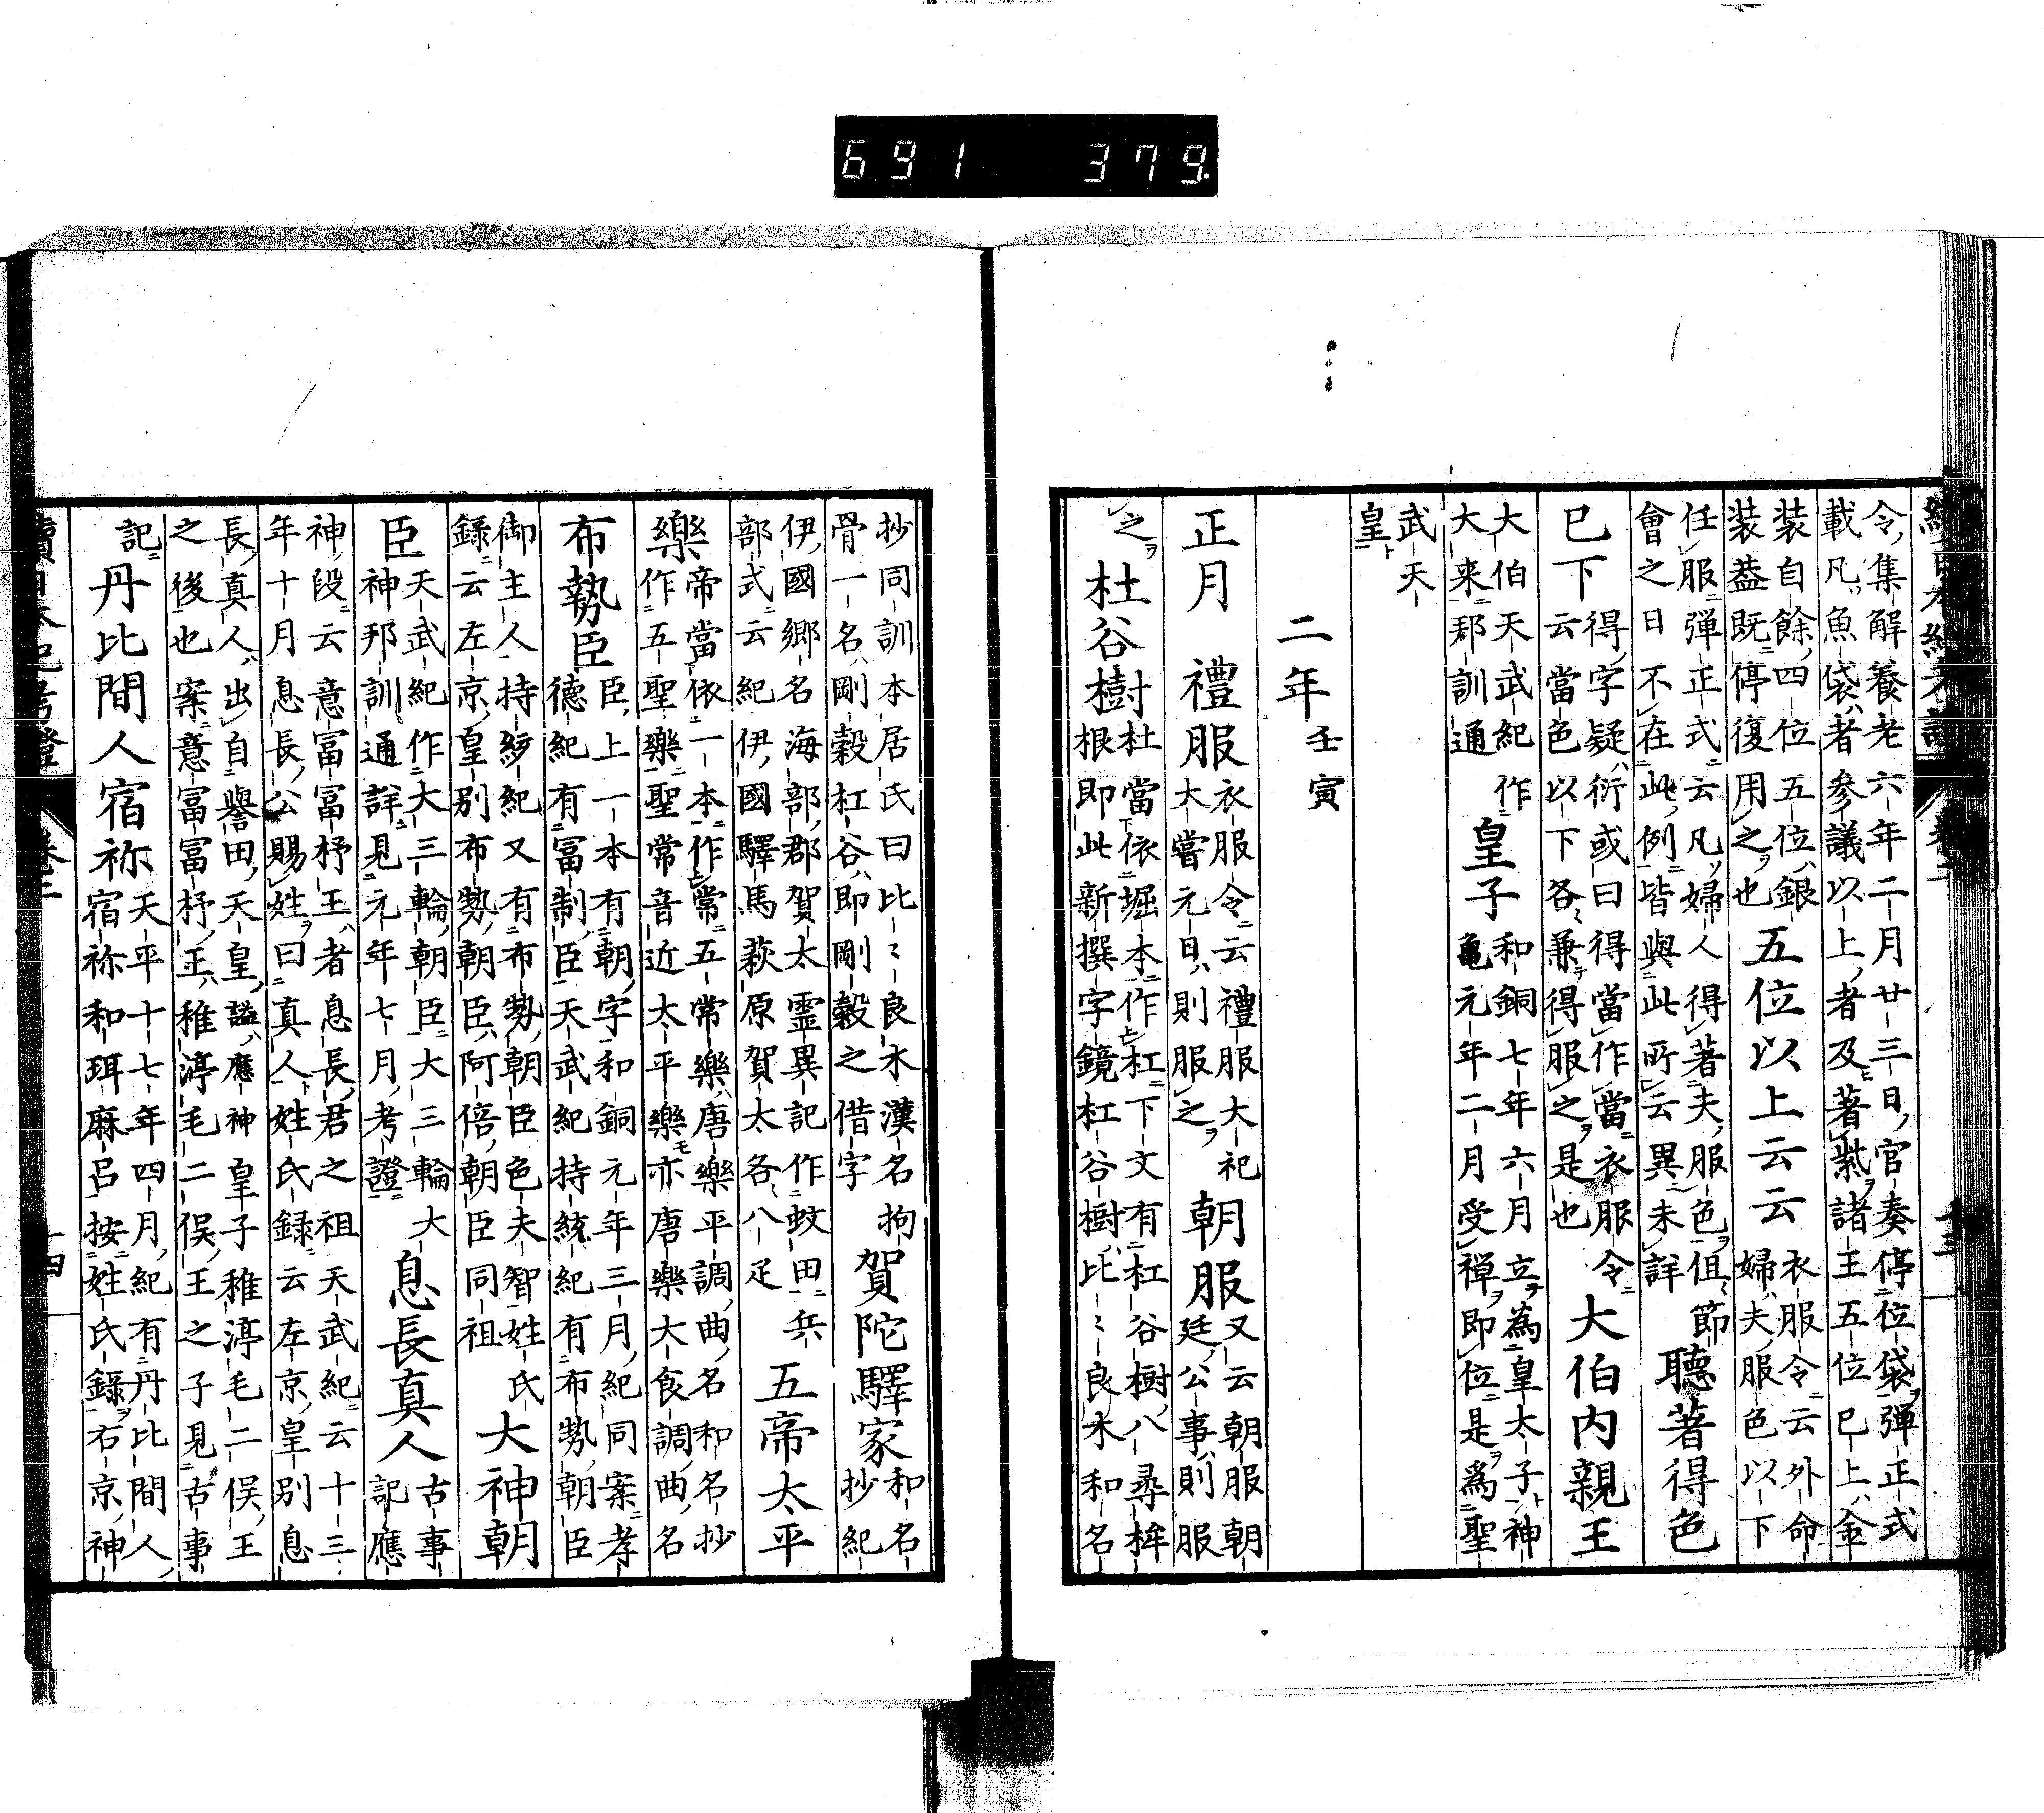 691 379.
令集解養老六年二月廿三日官奏停位袋彈正式
載凡魚袋者參議以上者及著紫諸王五位已上金
装自餘四位五位銀
装葢既停復用之也
五位以上云云
衣服令云外命
婦夫服色以下
任服彈正式云凡婦人得著夫服色但節
會之日不在此例皆與此所云異未詳
聽著得色
已下
得字疑衍或曰得當作當衣服令
云當色以下各兼得服之是也
大伯内親王
大伯天武紀作
大来郡訓通
皇子
和銅七年六月立為皇太子神
亀元年二月受禅即位是爲聖
武天
皇
二年壬寅
正月
禮服
衣服令云禮服大祀
大嘗元日則服之
朝服
又云朝服朝
廷公事則服
之
杜谷樹
杜當依堀本作杠下文有杠谷樹八尋桙
根即此新撰字鏡杠谷樹比〻良木和名
抄同訓本居氏曰比〻良木漢名拘
骨一名剛穀杠谷即剛穀之借字
賀陀驛家
和名
抄紀
伊國郷名海部郡賀太靈異記作蚊田兵
部式云紀伊國驛馬萩原賀太各八疋
五帝太平
樂
帝當依一本作常五常樂唐樂平調曲名和名抄
作五聖樂聖常音近太平樂亦唐樂大食調曲名
布勢臣
臣上一本有朝字和銅元年三月紀同案孝
德紀有冨制臣天武紀持統紀有布勢朝臣
御主人持統紀又有布勢朝臣色夫智姓氏
錄云左京皇別布勢朝臣阿倍朝臣同祖
大神朝
臣
天武紀作大三輪朝臣大三輪大
神邦訓通詳見元年七月考證
息長真人
古事
記應
神段云意富冨杼王者息長君之祖天武紀云十三
年十月息長公賜姓曰真人姓氏録云左京皇別息
長真人出自譽田天皇謚應神皇子稚渟毛二俣王
之後也案意富冨杼王稚渟毛二俣王之子見古事
記
丹比間人宿祢
天平十七年四月紀有丹比間人
宿祢和珥麻呂按姓氏錄右京神
續日本紀考證 卷二 十四